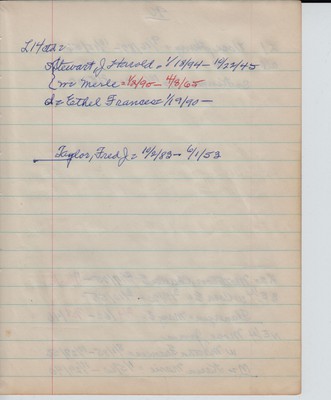 L14 d2=
Stewart, J Harold = 1/13/94 – 10/22/45
{ m = Merle = 1/2/90 – 4/3/65
d = Ethel Frances = 1/19/90 –
Taylor, Fred J. = 10/6/83 – 6/1/53